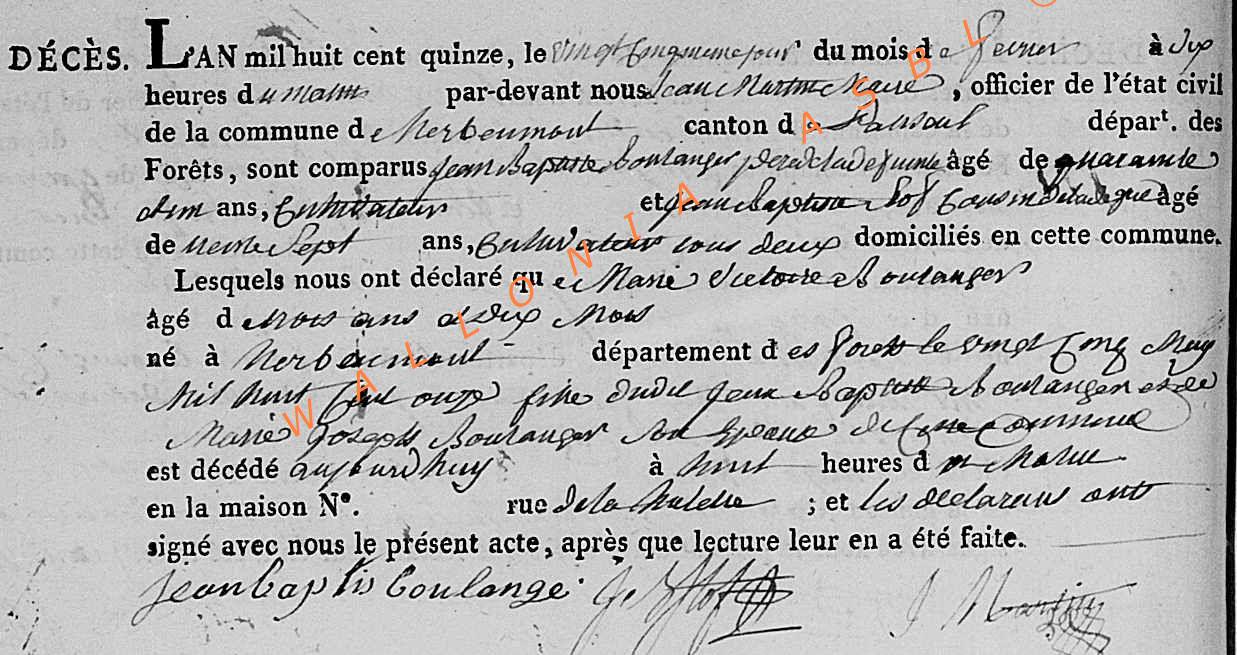 DÉCÈS. L'AN mil huit cent quinze, le vingt cinquieme jour du mois de fevrier à dix
heures du matin par-devant nous Jean Martin Maire, officier de l'état civil
de la commune de Herbeumont canton de Paliseul dépar<sup>t</sup>. des
Forêts, sont comparus Jean Baptiste Boulanger pere de la defunte âgé de quarante
et un ans, Cultivateur et Jean Baptiste Cousin âgé
de trente Sept ans, Cultivateur tous deux domiciliés en cette commune.
Lesquels nous ont déclaré que Marie Victoire Boulanger
âgé de trois ans et dix Mois
né à Herbeumont département des forets le vingt Cinq
Mil huit Cent onze fille dudit Jean Baptiste Boulanger et de
Marie Joseph Boulanger de Cette Commune
est décédé aujourd'huy à huit heures du Matin
en la maison N°. rue de la ; et les declarans ont
signé avec nous le présent acte, après que lecture leur en a été faite.
jean baptis boulange J Martin
WALLONIA ASBL